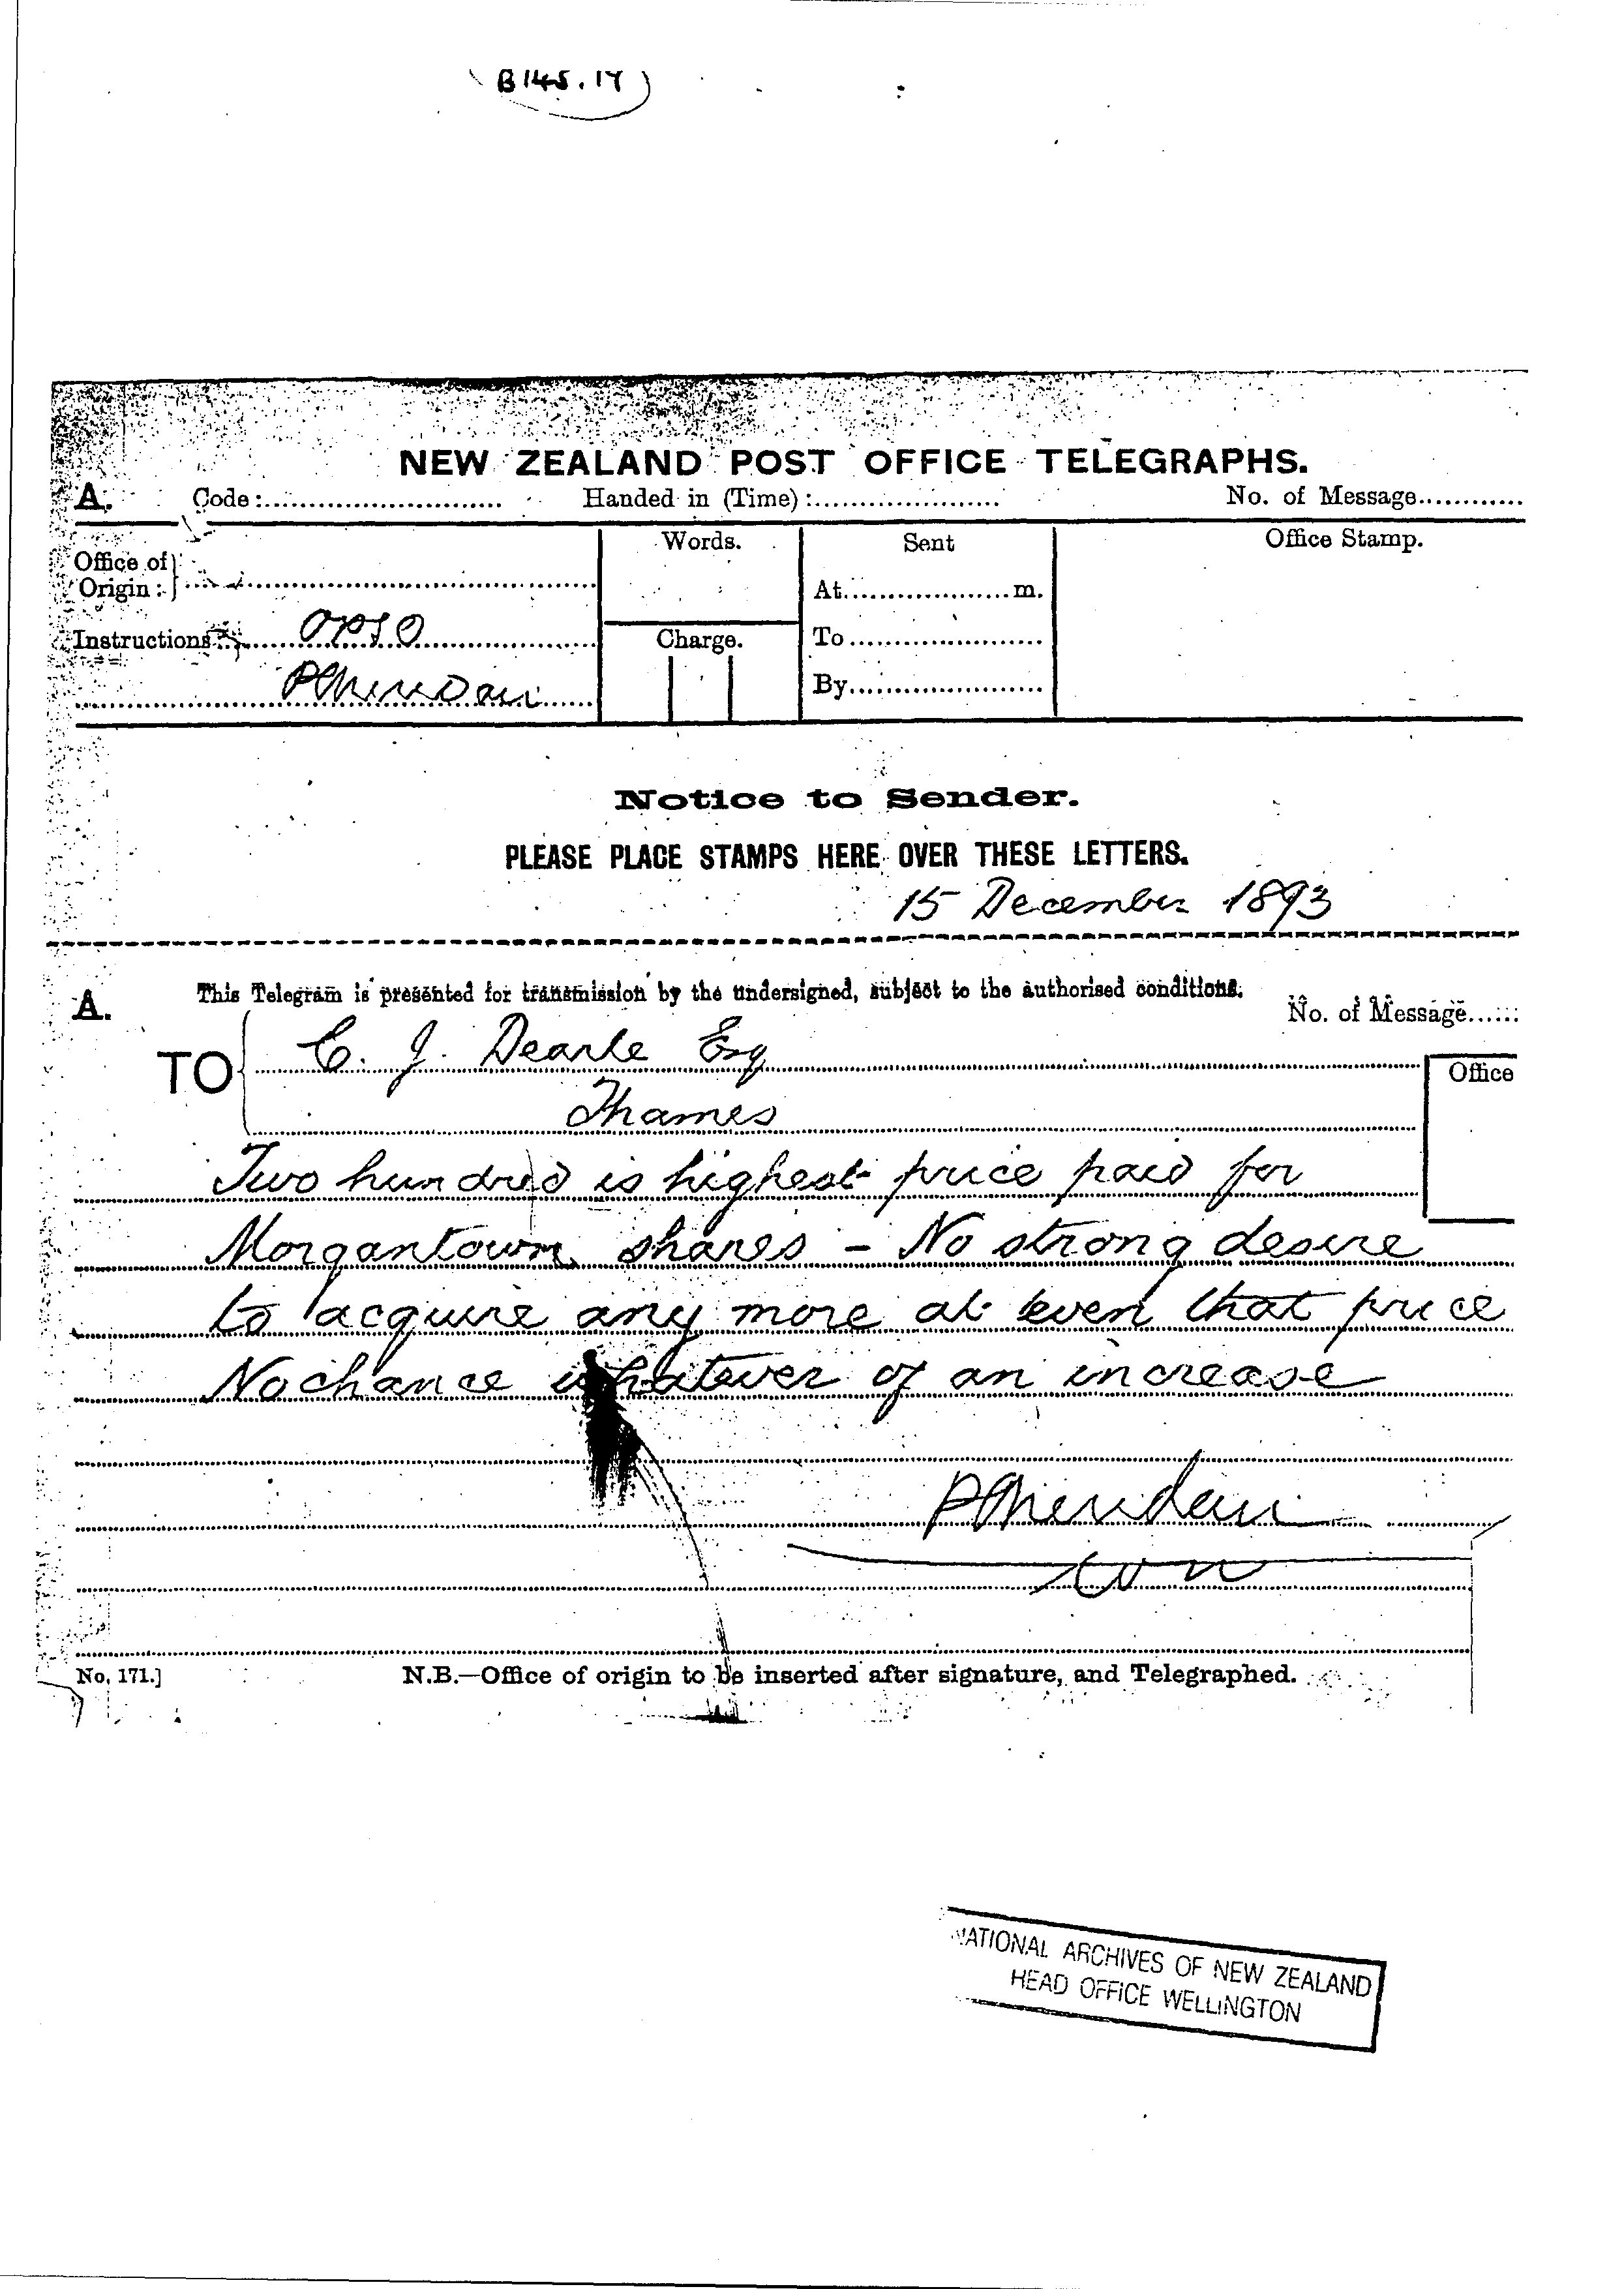 (B145.17)
NEW ZEALAND POST OFFICE TELEGRAPHS.
A. Code: Handed in (Time): No. of Message
Office of Origin: Words. Sent Office Stamp.
At m.
Instructions: Charge. To
PSheridan By
Notice to Sender.
PLEASE PLACE STAMPS HERE OVER THESE LETTERS.
15 December 1893
A. This Telegram is presented for transmission by the undersigned, subject to the authorised conditions. No. of Message
TO C. J. Dearle Esq Office
Thames
Two hundred is highest price paid for
Morgantown shares - No strong desire
to acquire any more at even that price
No chance whatever of an increase
PSheridan
No. 171.] N.B.—Office of origin to be inserted after signature, and Telegraphed.
NATIONAL ARCHIVES OF NEW ZEALAND
HEAD OFFICE WELLINGTON